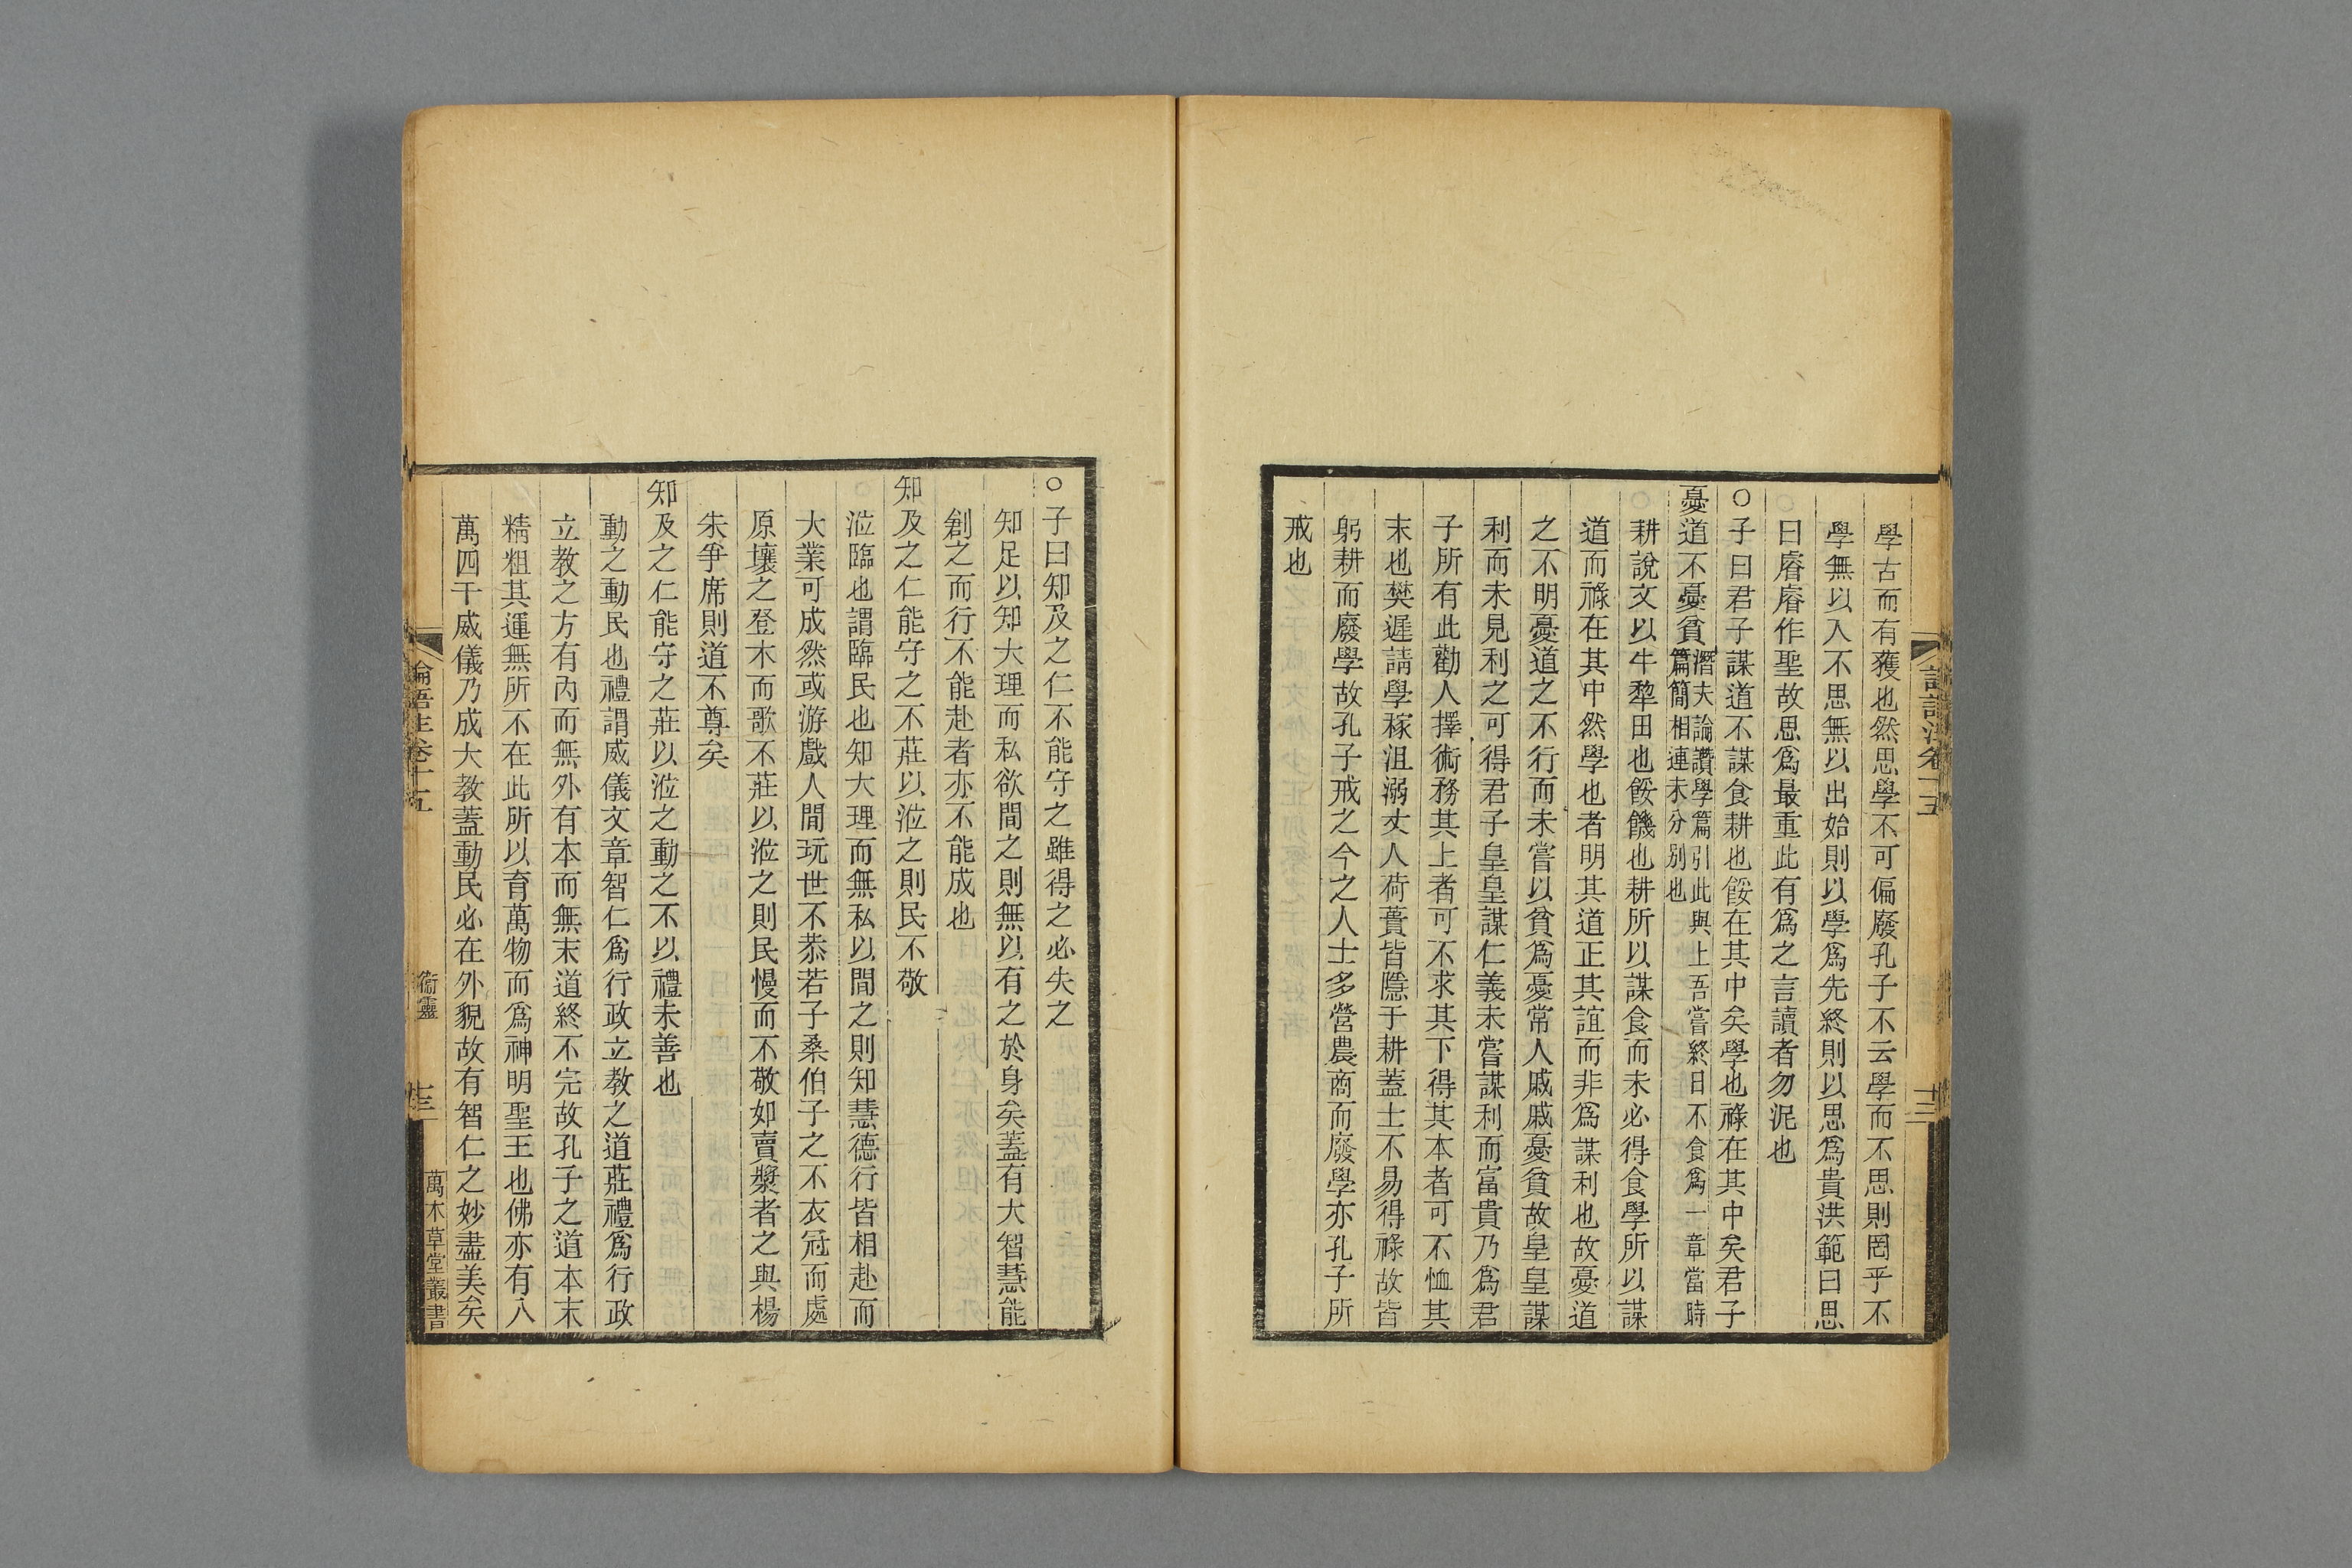 學古而有獲也然思學不可偏廢孔子不云學而不思則罔乎不
學無以入不思無以出始則以學爲先終則以思爲貴洪範曰思
曰睿睿作聖故思爲最重此有爲之言讀者勿泥也
○子曰君子謀道不謀食耕也餒在其中矣學也祿在其中矣君子
憂道不憂貧
潛夫論讚學篇引此與上吾嘗終日不食爲一章當時
篇簡相連未分別也
耕說文以牛犂田也餒饑也耕所以謀食而未必得食學所以謀
道而祿在其中然學也者明其道正其誼而非爲謀利也故憂道
之不明憂道之不行而未嘗以貧爲憂常人戚戚憂貧故皇皇謀
利而未見利之可得君子皇皇謀仁義未嘗謀利而富貴乃爲君
子所有此勸人擇術務其上者可不求其下得其本者可不恤其
末也樊遲請學稼沮溺丈人荷蕢皆隱于耕蓋士不易得祿故皆
躬耕而廢學故孔子戒之今之人士多營農商而廢學亦孔子所
戒也
○子曰知及之仁不能守之雖得之必失之
知足以知大理而私欲間之則無以有之於身矣蓋有大智慧能
創之而行不能赴者亦不能成也
知及之仁能守之不莊以涖之則民不敬
涖臨也謂臨民也知大理而無私以間之則知慧德行皆相赴而
大業可成然或游戲人間玩世不恭若子桑伯子之不衣冠而處
原壤之登木而歌不莊以涖之則民慢而不敬如賣漿者之與楊
朱爭席則道不尊矣
知及之仁能守之莊以涖之動之不以禮未善也
動之動民也禮謂威儀文章智仁爲行政立教之道莊禮爲行政
立教之方有內而無外有本而無末道終不完故孔子之道本末
精粗其運無所不在此所以育萬物而爲神明聖王也佛亦有八
萬四千威儀乃成大教蓋動民必在外貌故有智仁之妙盡美矣
論語注卷十五
衞靈
十三
萬木草堂叢書